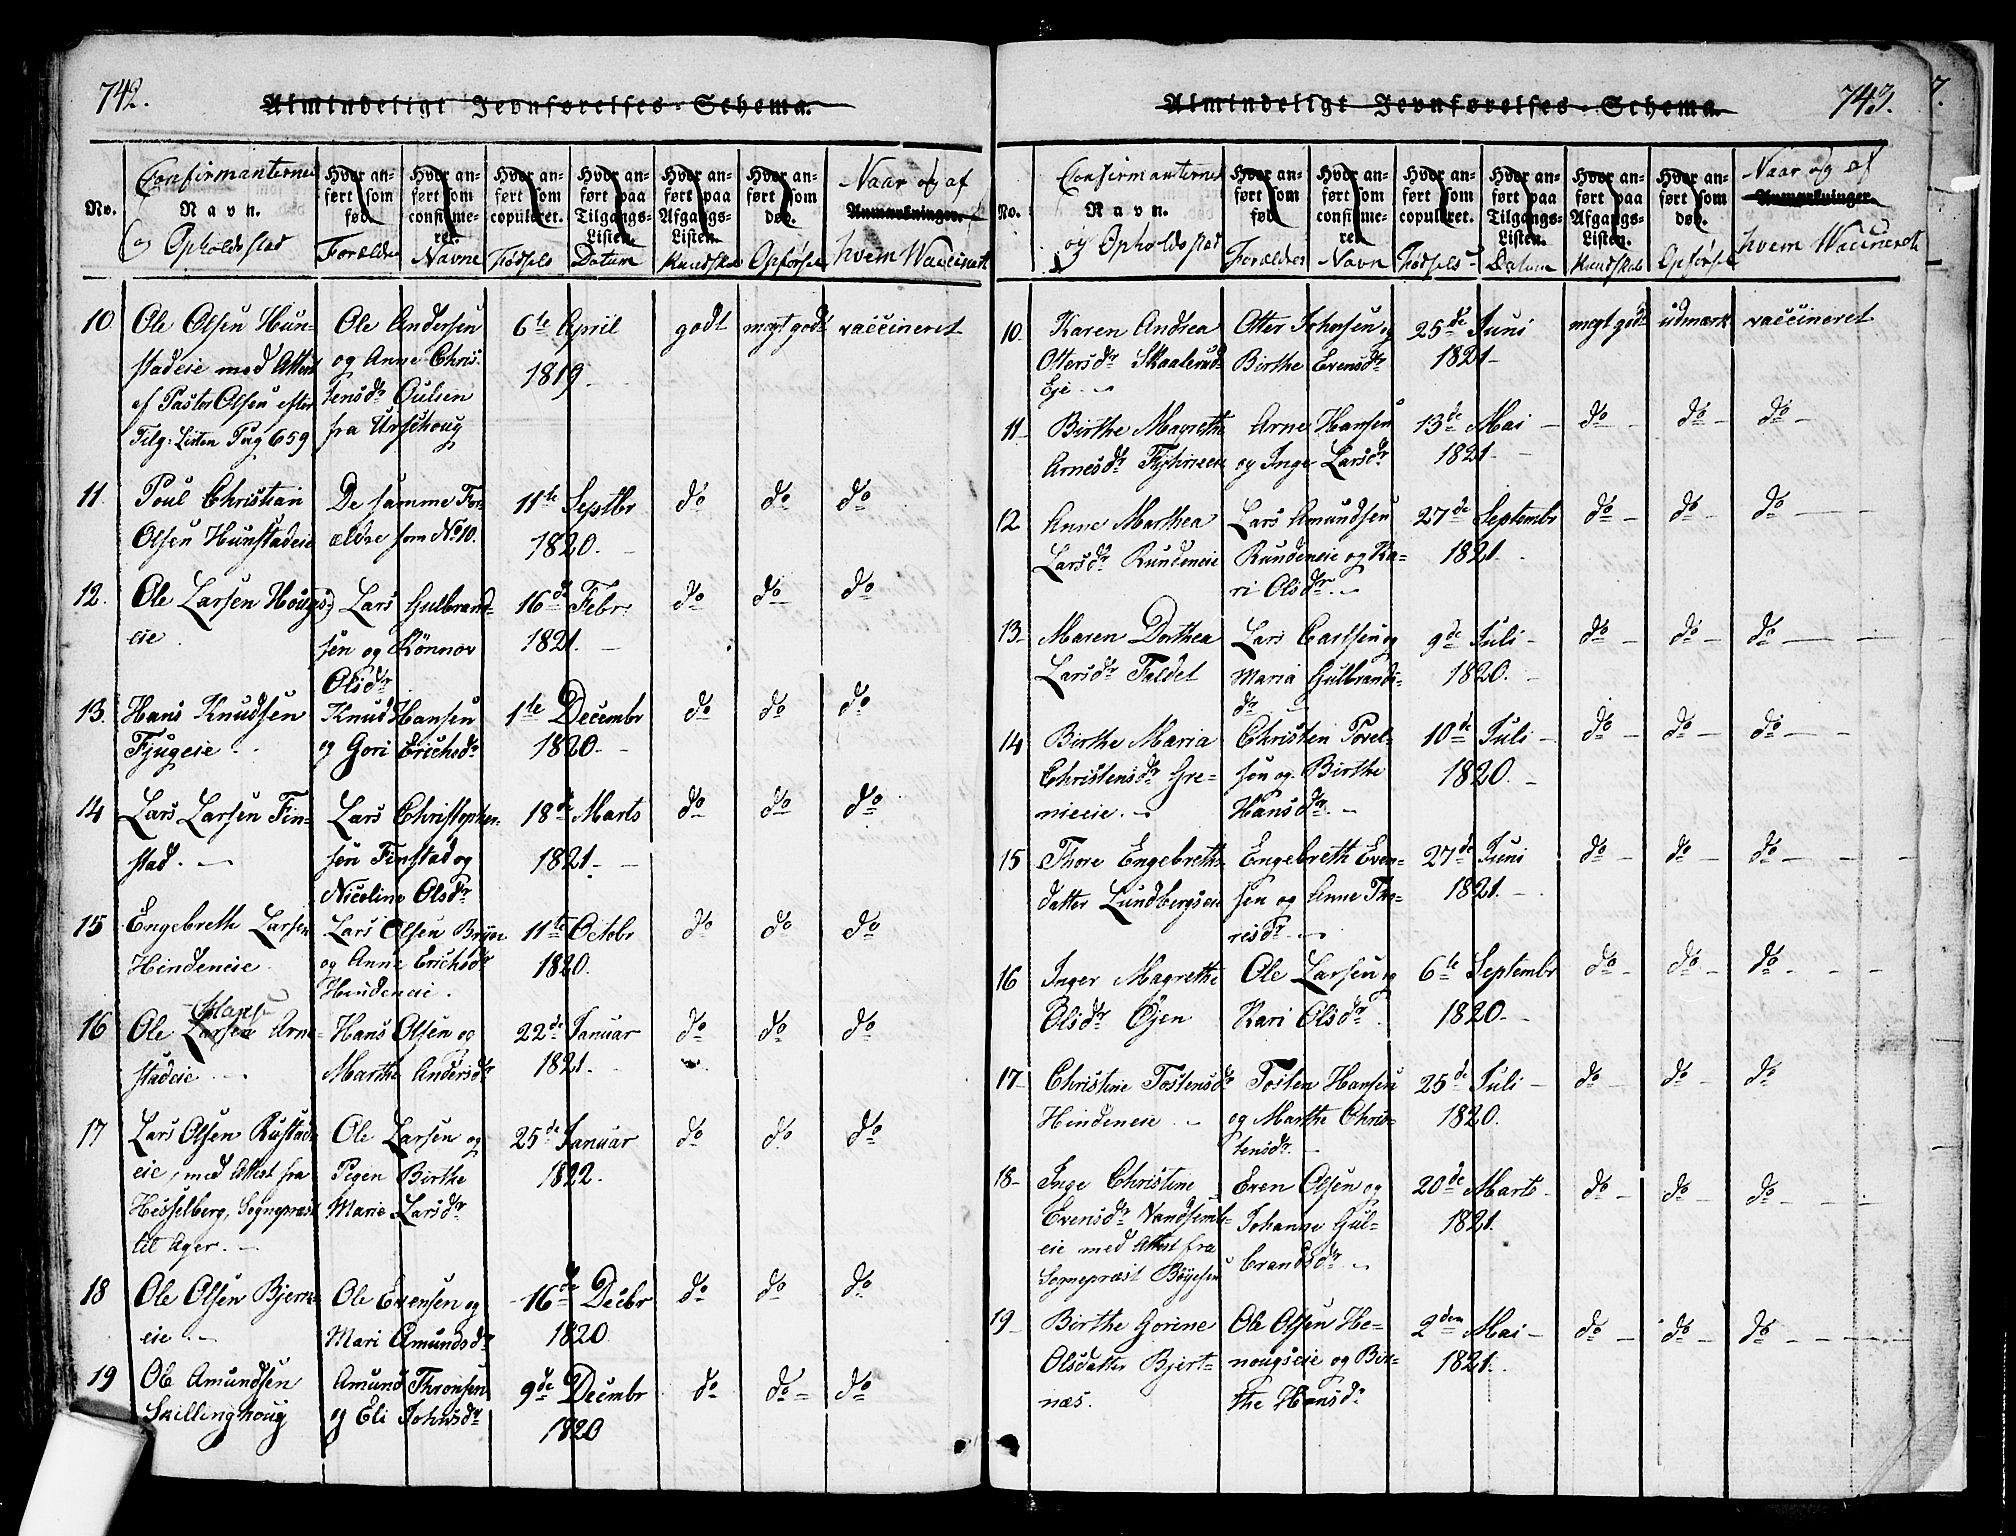 742.
Almindeligt Jevnførelses-Schema.
No.
Confirmanternes
Navn.
og Opholdsstad
Hvor anført som fød.
Forældre
Hvor anført som confirmeret.
Navne
Hvor anført som copuleret.
Fødsels
Hvor anført paa Tilgangs-Listen.
Datum
Hvor anført paa Afgangs-Listen.
Kundskab
Hvor anført som død.
Opførsel
Naar og af
Anmærkninger.
hvem Vaccineret
10 Ole Olsen Hun- Ole Andersen 6te April godt megt godt vaccineret
stadeie med Attest og Anne Chris- 1819.
af Pastor Olsen efter tensdr Oulsen
Tilg: Listen Pag 659 fra Urschoug
11. Poul Christian De samme For- 11te Septbr do do do
Olsen Hunstadeie ældre som No 10. 1820.
12. Ole Larsen Hougs- Lars Gulbrand- 16de Febr. do do do
eie. sen og Rönnov 1821.
Olsdr
13. Hans Knudsen Knud Hansen 1te Decembr do do do
Fjugeie og Gori Erichsdr 1820.
14 Lars Larsen Fin- Lars Christopher- 18de Marts do do do
stad. sen Finstad og 1821.
Nicoline Olsdr
15 Engebreth Larsen Lars Olsen Bryn 11te Octobr do do do
Hindeneie. og Anne Erichsdr 1820.
Hindeneie.
Hans
16 Ole Larsen Arne- Hans Olsen og 22de Januar do do do
stadeie Marthe Andersdr 1821.
17 Lars Olsen Rustad- Ole Larsen og 25de Januar do do do
eie, med Attest fra Pigen Birthe 1822.
Hesselberg, Sognepræst Marie Larsdr
til Ager.
18 Ole Olsen Bjerne- Ole Evensen og 16de Decbr do do do
eie. Mari Amundsdr 1820.
19 Ole Amundsen Amund Thronsen 9de Decembr do do do
Skillinghoug og Eli Johnsdr 1820
743.
Almindeligt Jevnførelses-Schema.
No.
Confirmanternes
Navn.
og Opholdsstad
Hvor anført som fød.
Forældres
Hvor anført som confirmeret.
Navn
Hvor anført som copuleret.
Fødsels
Hvor anført paa Tilgangs-Listen.
Datum
Hvor anført paa Afgangs-Listen.
Kundskab
Hvor anført som død.
Opførsel
Naar og af
Anmærkninger.
hvem Vaccineret
10. Karen Andrea Otter Johnsen og 25de Juni megt godt udmærk. vaccineret
Ottersdr Skaalerud- Birthe Evensdr 1821
Eje.
11 Birthe Magrethe Arne Hansen 13de Mai do do do
Arnesdr og Inge Larsdr 1821
12. Anne Marthea Lars Amundsen 27de Septembr do do do
Larsdr Rundeneie Rundeneie og Ka- 1821.
ri Olsdr.
13. Maren Dorthea Lars Carlsen og 9de Juli do do do
Larsdr Faldet Maria Gulbrands- 1820.
do
14 Birthe Maria Christen Povel- 10de Juli do do do
Christensdr Gre- sen og Birthe 1820.
nieeie. Hansdr.
15 Thore Engebreths- Engebreth Even- 27de Juni do do do
datter Lundbergseie sen og Anne Tho- 1821.
resdr.
16 Inger Magrethe Ole Larsen og 6te Septembr do do do
Olsdr Öjen Kari Olsdr. 1820.
17 Christine Tostensdr Tosten Hansen 25de Juli do do do
Hindeneie og Marthe Chris- 1820.
tensdr.
18 Inge Christine Even Olsen og 20de Marts do do do
Evensdr Vandsemb- Johanne Gul- 1821.
eie med Attest fra brandsdr
Sognepræst Böyesen
19 Birthe Gorine Ole Olsen He- 2den Mai do do do
Olsdatter Bjert- nougseie og Bir- 1821.
næs. the Hansdr